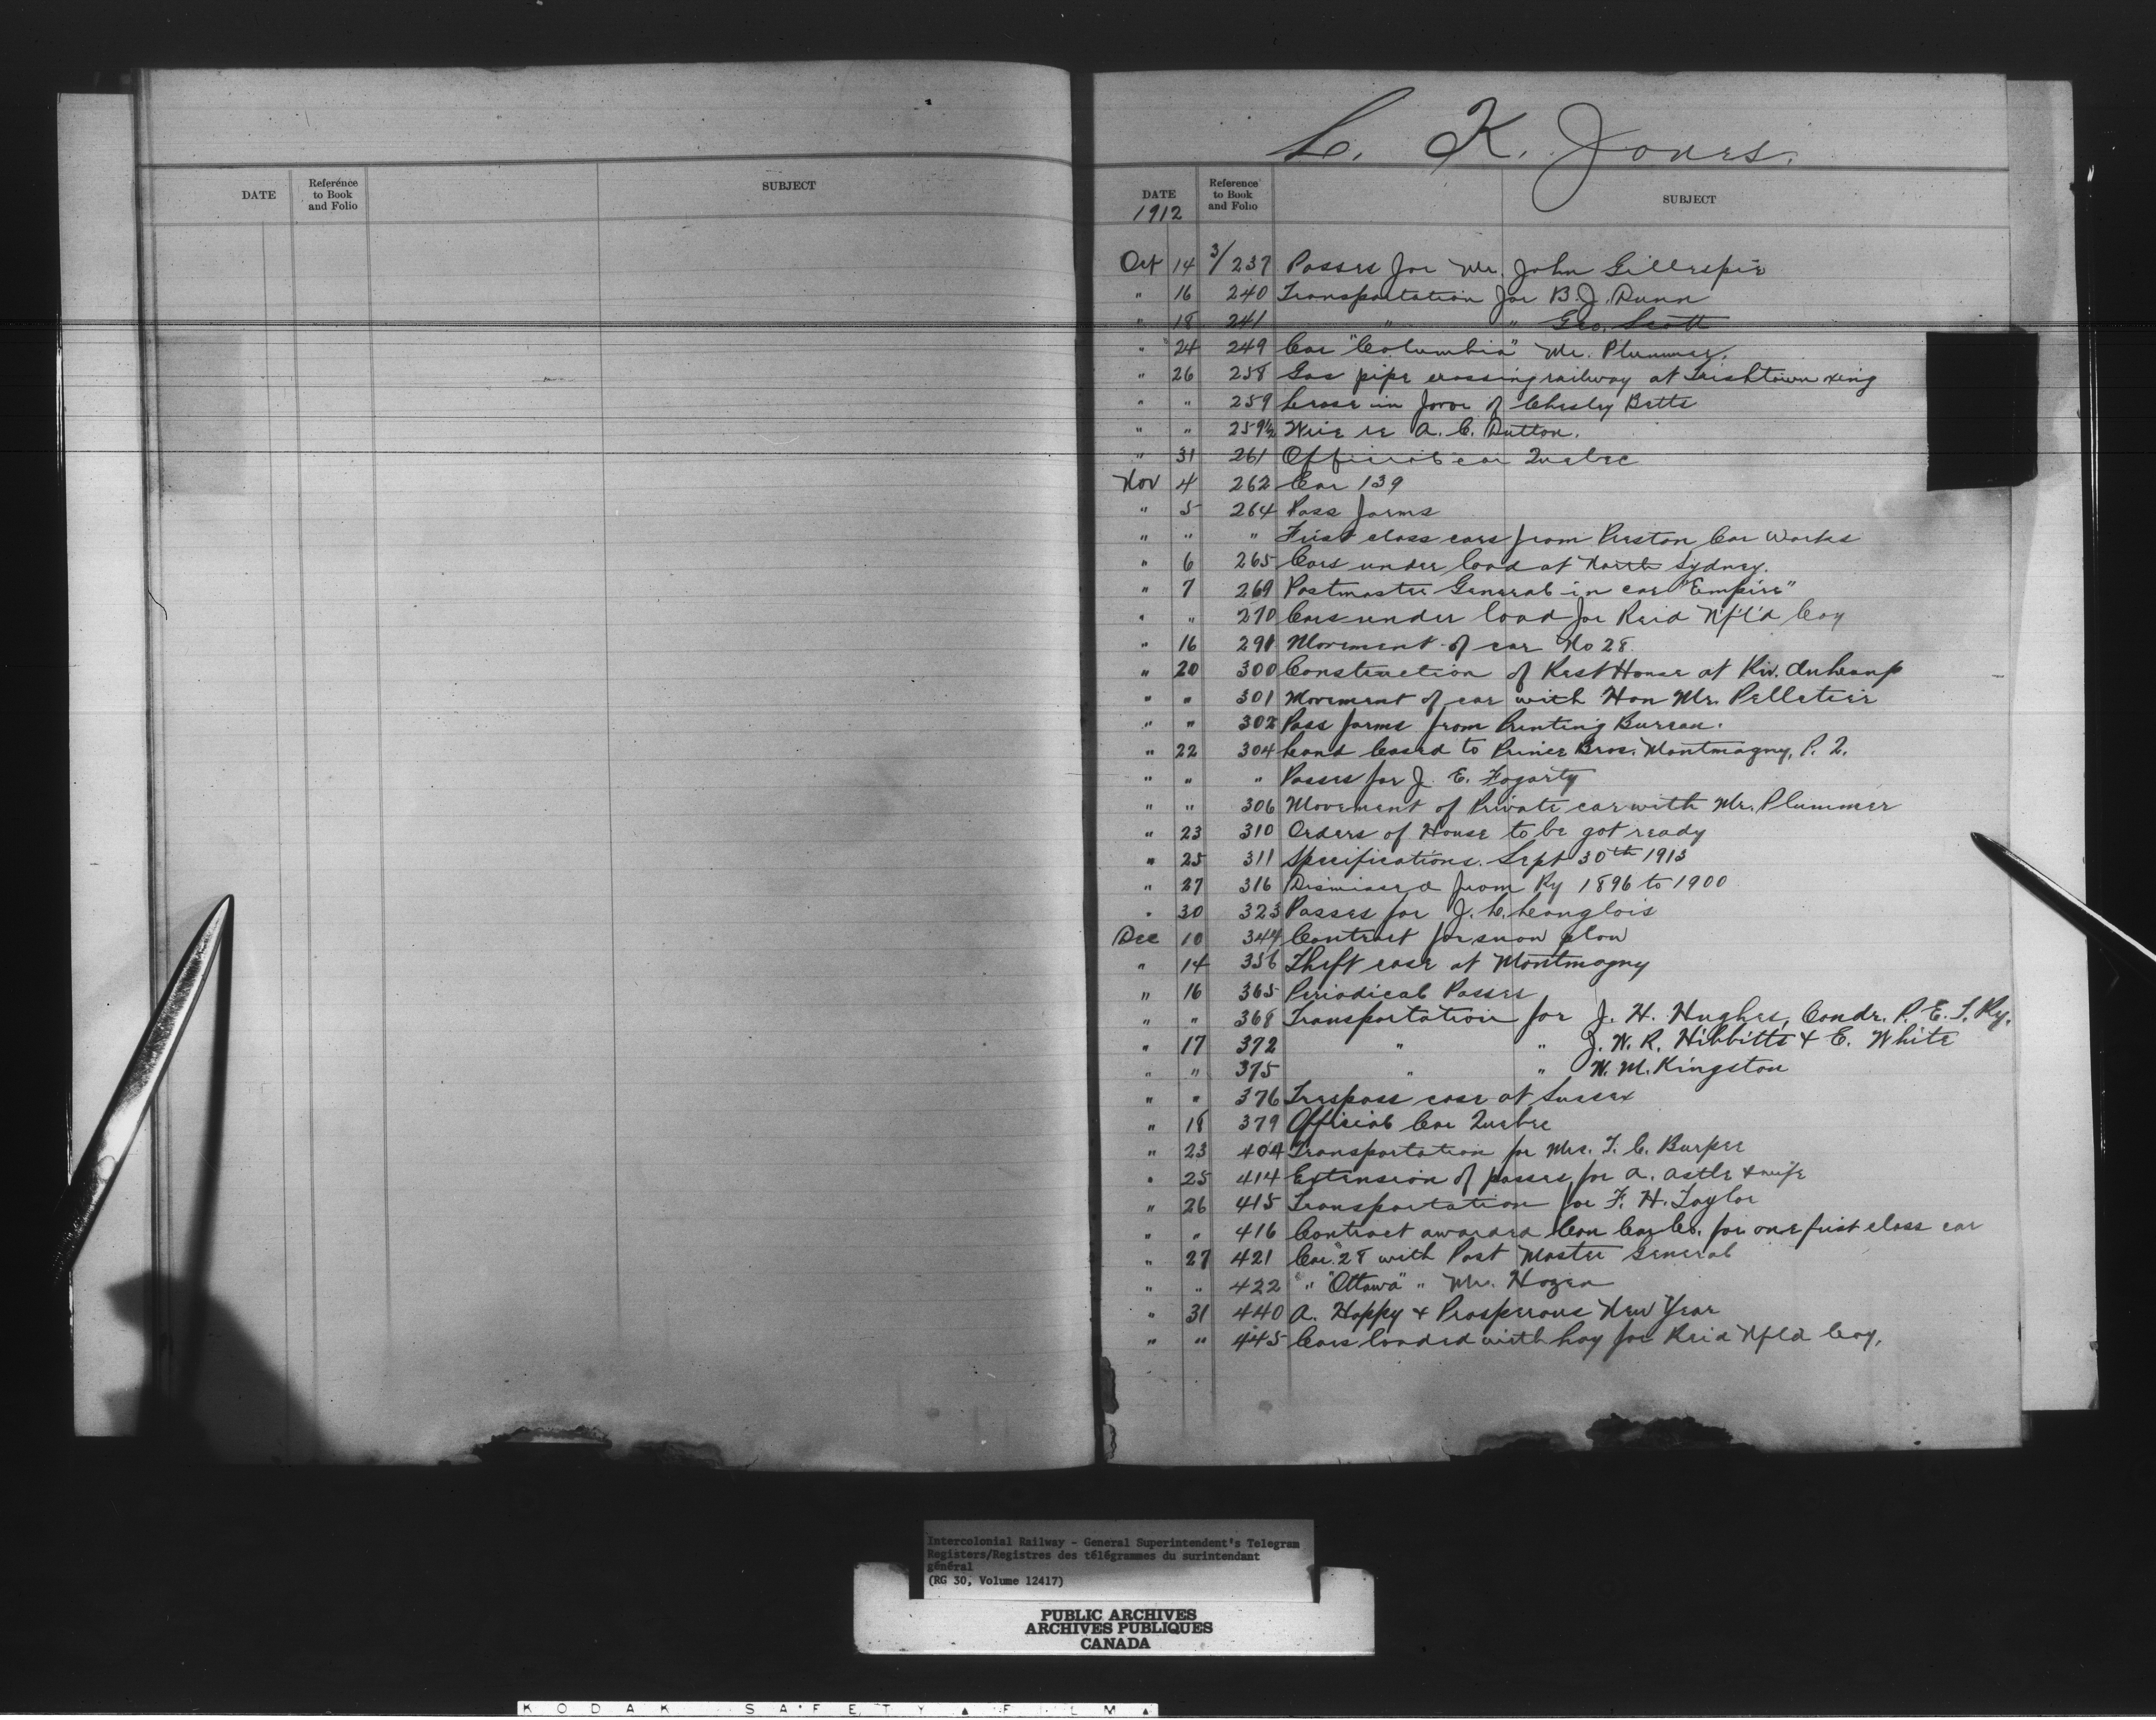 DATE Reference to Book and Folio SUBJECT
L. K. Jones.
DATE Reference to Book and Folio SUBJECT
1912
Oct 14 3/237 Passes for Mr. John Gillespie
" 16 240 Transportation for B. J. Dunn
" 18 241 " " Geo. Scott
" 24 249 Car "Columbia" Mr. Plummer.
" 26 258 Gas pipe crossing railway at Irishtown xing
" " 259 Lease in favor of Chesley Betts
" " 259½ Wire re A. C. Dutton.
" 31 261 Official car Quebec
Nov 4 262 Car 139
" 5 264 Pass forms
" " " First class cars from Preston Car Works
" 6 265 Cars under load at North Sydney.
" 7 269 Postmaster General in car "Empire"
" " 270 Cars under load for Reid N'f'l'd Coy
" 16 291 Movement of car No 28.
" 20 300 Construction of Rest House at Riv. Du Loup
" " 301 Movement of car with Hon Mr. Pelletier
" " 302 Pass forms from Printing Bureau.
" 22 304 Land leased to Price Bros. Montmagny, P. Q.
" " " Passes for J. E. Fogarty
" " 306 Movement of Private car with Mr. Plummer
" 23 310 Orders of House to be got ready
" 25 311 Specifications. Sept 30th 1913
" 27 316 Dismissed from Ry 1896 to 1900
" 30 323 Passes for J. C. Langlois
Dec 10 344 Contract for snow plow
" 14 356 Theft case at Montmagny
" 16 365 Periodical Passes
" " 368 Transportation for J. H. Hughes, Condr. P. E. I. Ry.
" 17 372 " " J. W. R. Hibbitts & E. White
" " 375 " " W. M. Kingston
" " 376 Trespass case at Sussex
" 18 379 Official Car Quebec
" 23 404 Transportation for Mrs. T. C. Burpee
" 25 414 Extension of passes for A. Astle & wife
" 26 415 Transportation for F. H. Taylor
" " 416 Contract awarded Can Car Co. for one first class car
" 27 421 Car 28 with Post Master General
" " 422 " "Ottawa" " Mr. Hazen
" 31 440 A. Happy & Prosperous New Year
" " 445 Cars loaded with hay for Reid Nfld Coy.
Intercolonial Railway - General Superintendent's Telegram
Registers/Registres des télégrammes du surintendant
général
(RG 30, Volume 12417)
PUBLIC ARCHIVES
ARCHIVES PUBLIQUES
CANADA
KODAK SAFETY FILM